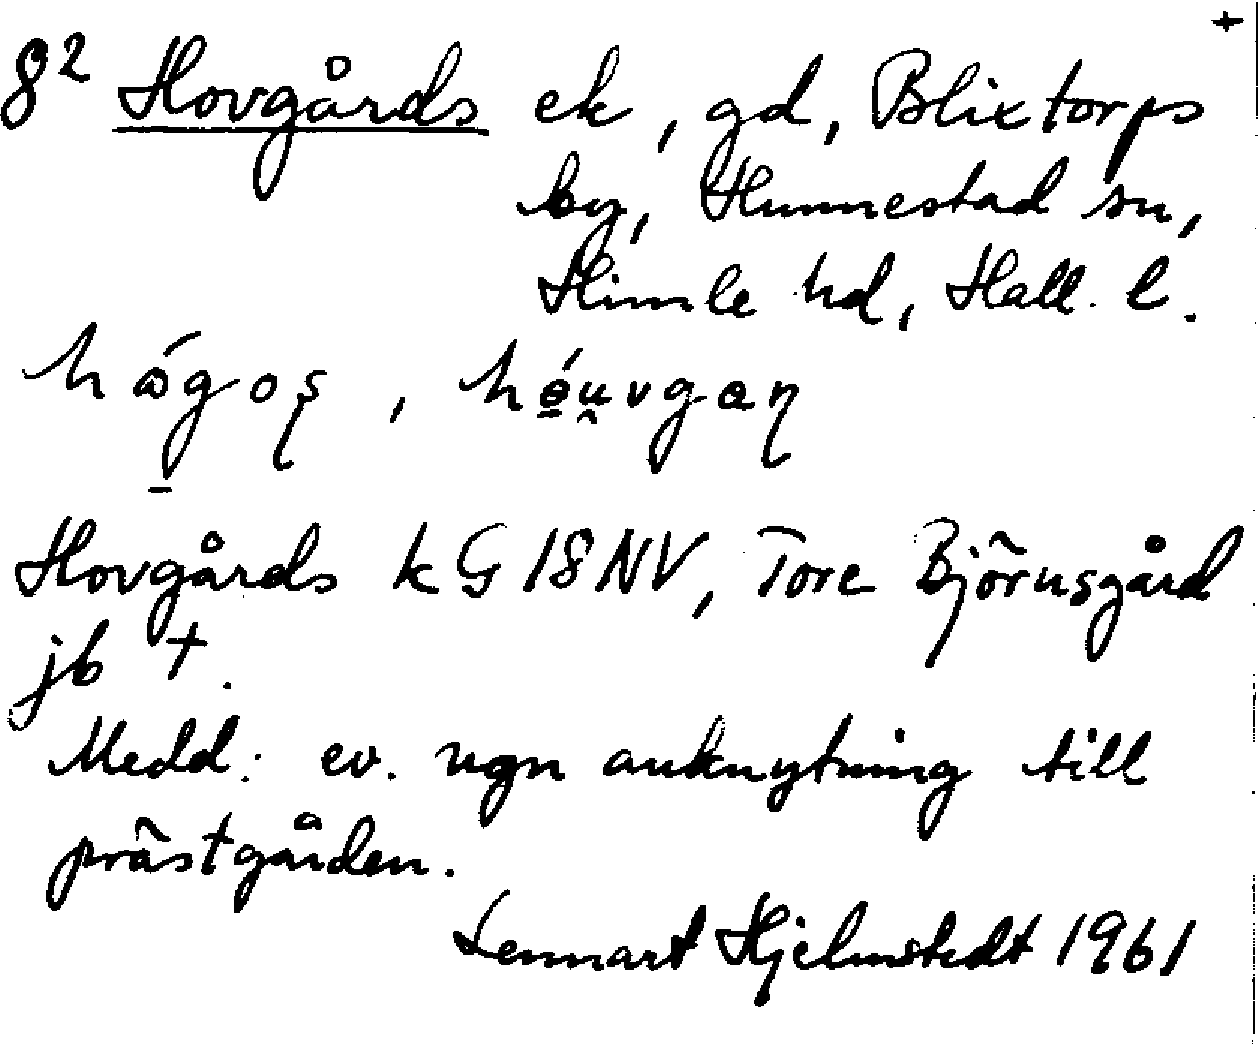 +
8² Hovgårds ek, gd, Blixtorps
by, Hunnestad sn,
Himle hd, Hall. l.
hǻgoş, hǿu̯vgaņ
Hovgårds k G 18 NV, Tore Björnsgård
jb +.
Medd: ev. ngn anknytning till
prästgården.
Lennart Hjelmstedt 1961